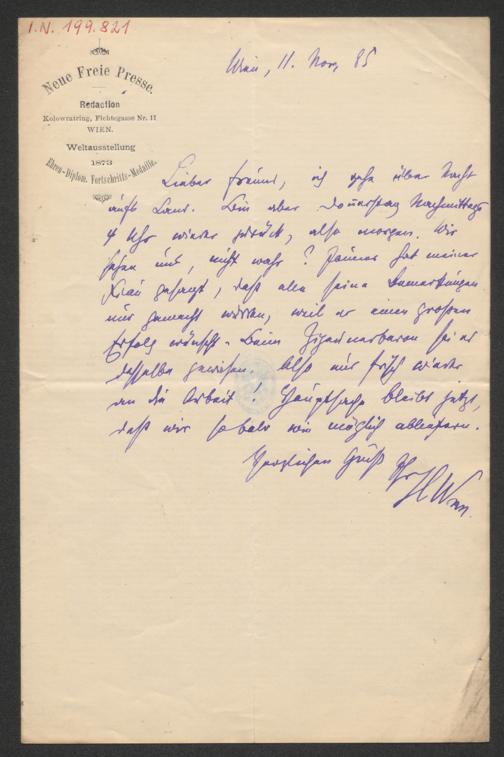 I.N. 199.821
Neue Freie Presse.
Redaction
Kolowratring, Fichtegasse Nr. 11
WIEN.
Weltausstellung
1873
Ehren-Diplom. Fortschritts-Medaille.
Wien, 11. Nov. 85
Lieber Freund, ich gehe über Nacht
aufs Land. Bin aber Donnerstag Nachmittags
4 Uhr wieder zurück, also morgen. Wir
sehen uns, nicht wahr? Jauner hat meiner
Frau gesagt, daß alle seine Bemerkungen
nur gemacht wurden, weil er einen großen
Erfolg wünscht. Beim Zigeunerbaron sei es
dasselbe gewesen. Also nur frisch wieder
an die Arbeit! Hauptsache bleibt jetzt,
daß wir sobald wie möglich abliefern.
Herzlichen Gruß Ihr